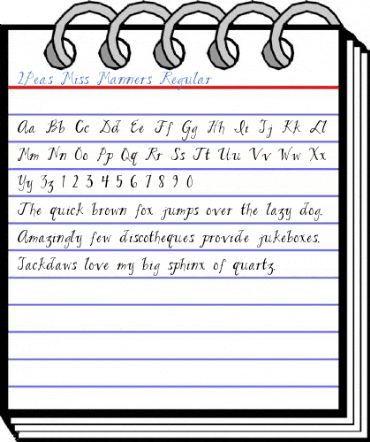 2Peas Miss Manners Regular
Aa Bb Cc Dd Ee Ff Gg Hh Ii Jj Kk Ll
Mm Nn Oo Pp Qq Rr Ss Tt Uu Vv Ww Xx
Yy Zz 1 2 3 4 5 6 7 8 9 0
The quick brown fox jumps over the lazy dog.
Amazingly few discotheques provide jukeboxes.
Jackdaws love my big sphinx of quartz.